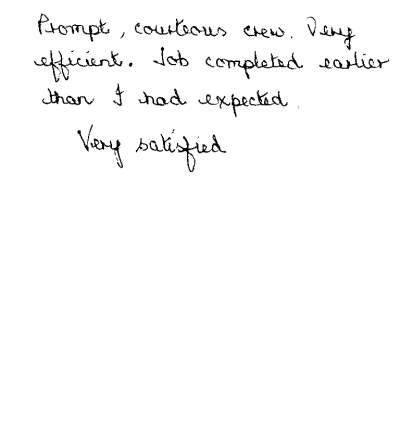 Prompt, courteous crew. Very
efficient. Job completed earlier
than I had expected.
Very satisfied